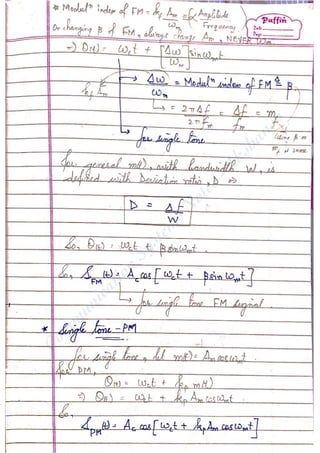 * Modulⁿ index of FM = kf Am → Amplitude
ωm → Frequency
Puffin
Date
Page
On changing β of FM, always change Am, NEVER ωm
⇒ θ(t) = ωct + [Δω/ωm] sinωmt
kf Am
→ Δω/ωm = Modulⁿ index of FM ≜ β
↳ = 2πΔf / 2πfm = Δf / fm = mf
→ for single tone
for general m(t), with bandwidth W, is
defined with Deviation ratio, D ⇒
D = Δf / W
So, θ(t) = ωct + β sinωmt.
So, SFM(t) = Ac cos [ωct + β sin ωmt]
↳ for single tone FM signal.
* Single tone - PM
for single tone, let m(t) = Am cosωmt.
for PM,
θ(t) = ωct + kp m(t)
⇒ θ(t) = ωct + kp Am cosωmt
So,
SPM(t) = Ac cos [ωct + kp Am cosωmt]